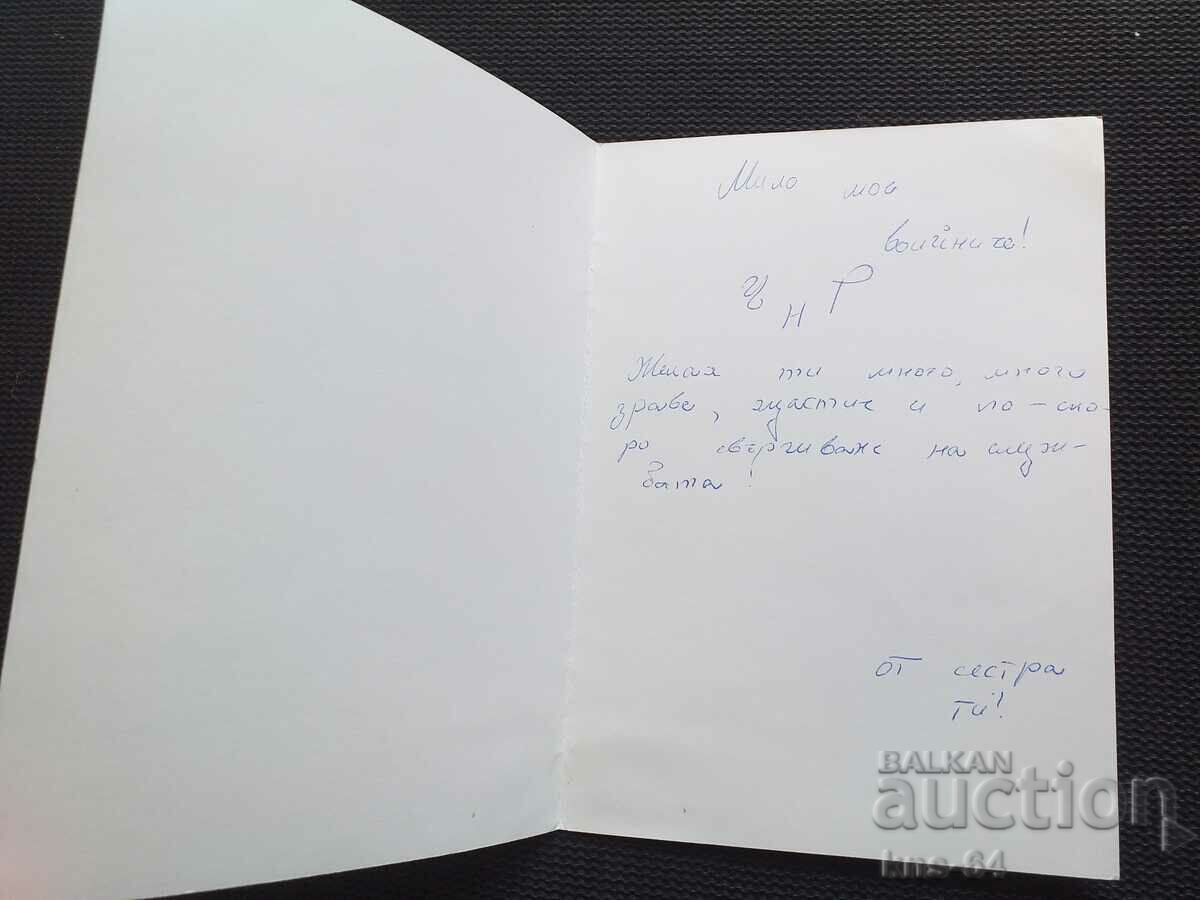 Мило мое
войниче!
Ч Н Р
Желая ти много, много
здраве, щастие и по-ско-
ро свършване на служ-
бата!
от сестра
ти!
BALKAN
auction
kns-64